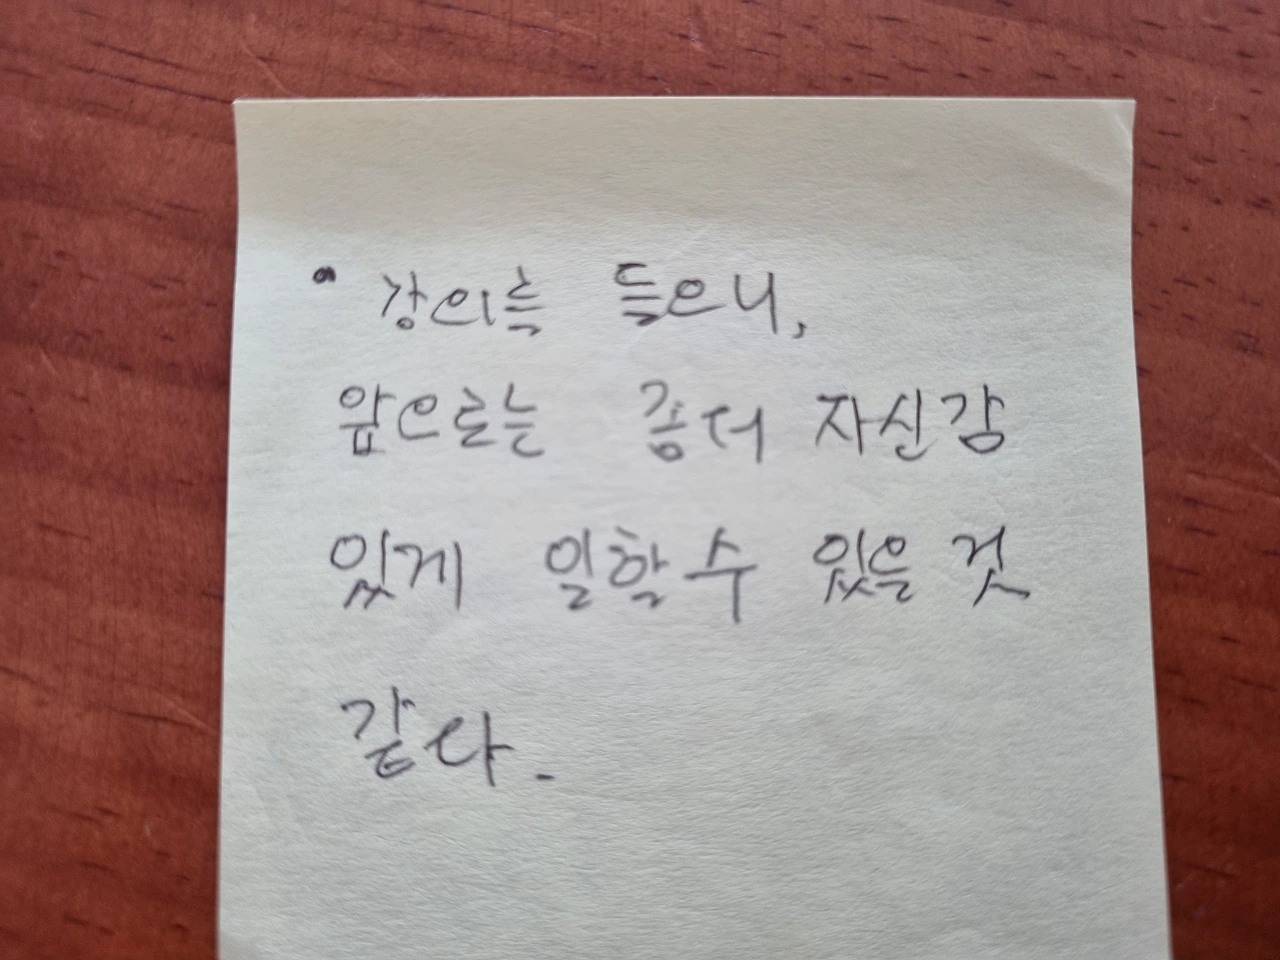 • 강의를 들으니,
앞으로는 좀더 자신감
있게 일할 수 있을 것
같다.